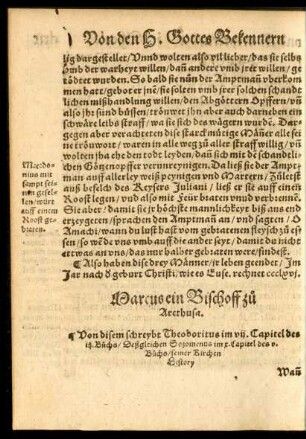 Von den H. Gottes Bekennern
lig dargestellet / Vnnd wolten also vil lieber / das sie selbs
vmb der warheyt willen / dañ andere vmb jret willen / ge
tödtet wurden. So bald sie nün der Amptmañ vberkom
men hatt / gebot er jne / sie solten vmb jrer solchen schandt
lichen mißhandlung willen / den Abgöttern Opffern / vñ
also jhr sünd büssen / tröwet jhn aber auch darneben ein
schwäre leibs straff / wa sie sich des wägern wurdē. Dar
gegen aber verachteten dise starckmütige Mäñer alle sei
ne tröuwort / waren in alle weg zů aller straff willig / vñ
wolten jha ehe den todt leyden / dañ sich mit dē schandtli
chen Götzenopffer verunreynigen. Da ließ sie der Ampt
man auff allerley weiß peynigen vnd Martern / Zů letst
auß befelch des Keysers Juliani / ließ er sie auff eineñ
Roost legen / vnd also mit Feür braten vnud verbreñeñ.
Sie aber / damit sie jr höchste mannlichkeyt biß ans end
erzeygeten / sprachen den Amptmañ an / vnd sagten / O
Amachi / wann du lust hast vom gebratenen fleysch zů es
sen / so wēde vns vmb auff die ander seyt / damit du nicht
ettwas an vns / das nur halber gebraten were / findest.
¶ Also haben dise drey Männer jr leben geendet / Im
Jar nach d geburt Christi / wie es Euse. rechnet ccclxvj.
Macedo-
nius mit
sampt sei-
nen gesel-
len / würt
auff einem
Roost ge-
braten.
Marcus ein Bischoff zů
Arethusa.
¶ Von disem schreybt Theodoritus im vij. Capitel des
iij. Bůchs / Deßgleichen Sozomenus im x. Capitel des v.
Bůchs / seiner Kirchen
History
Wañ